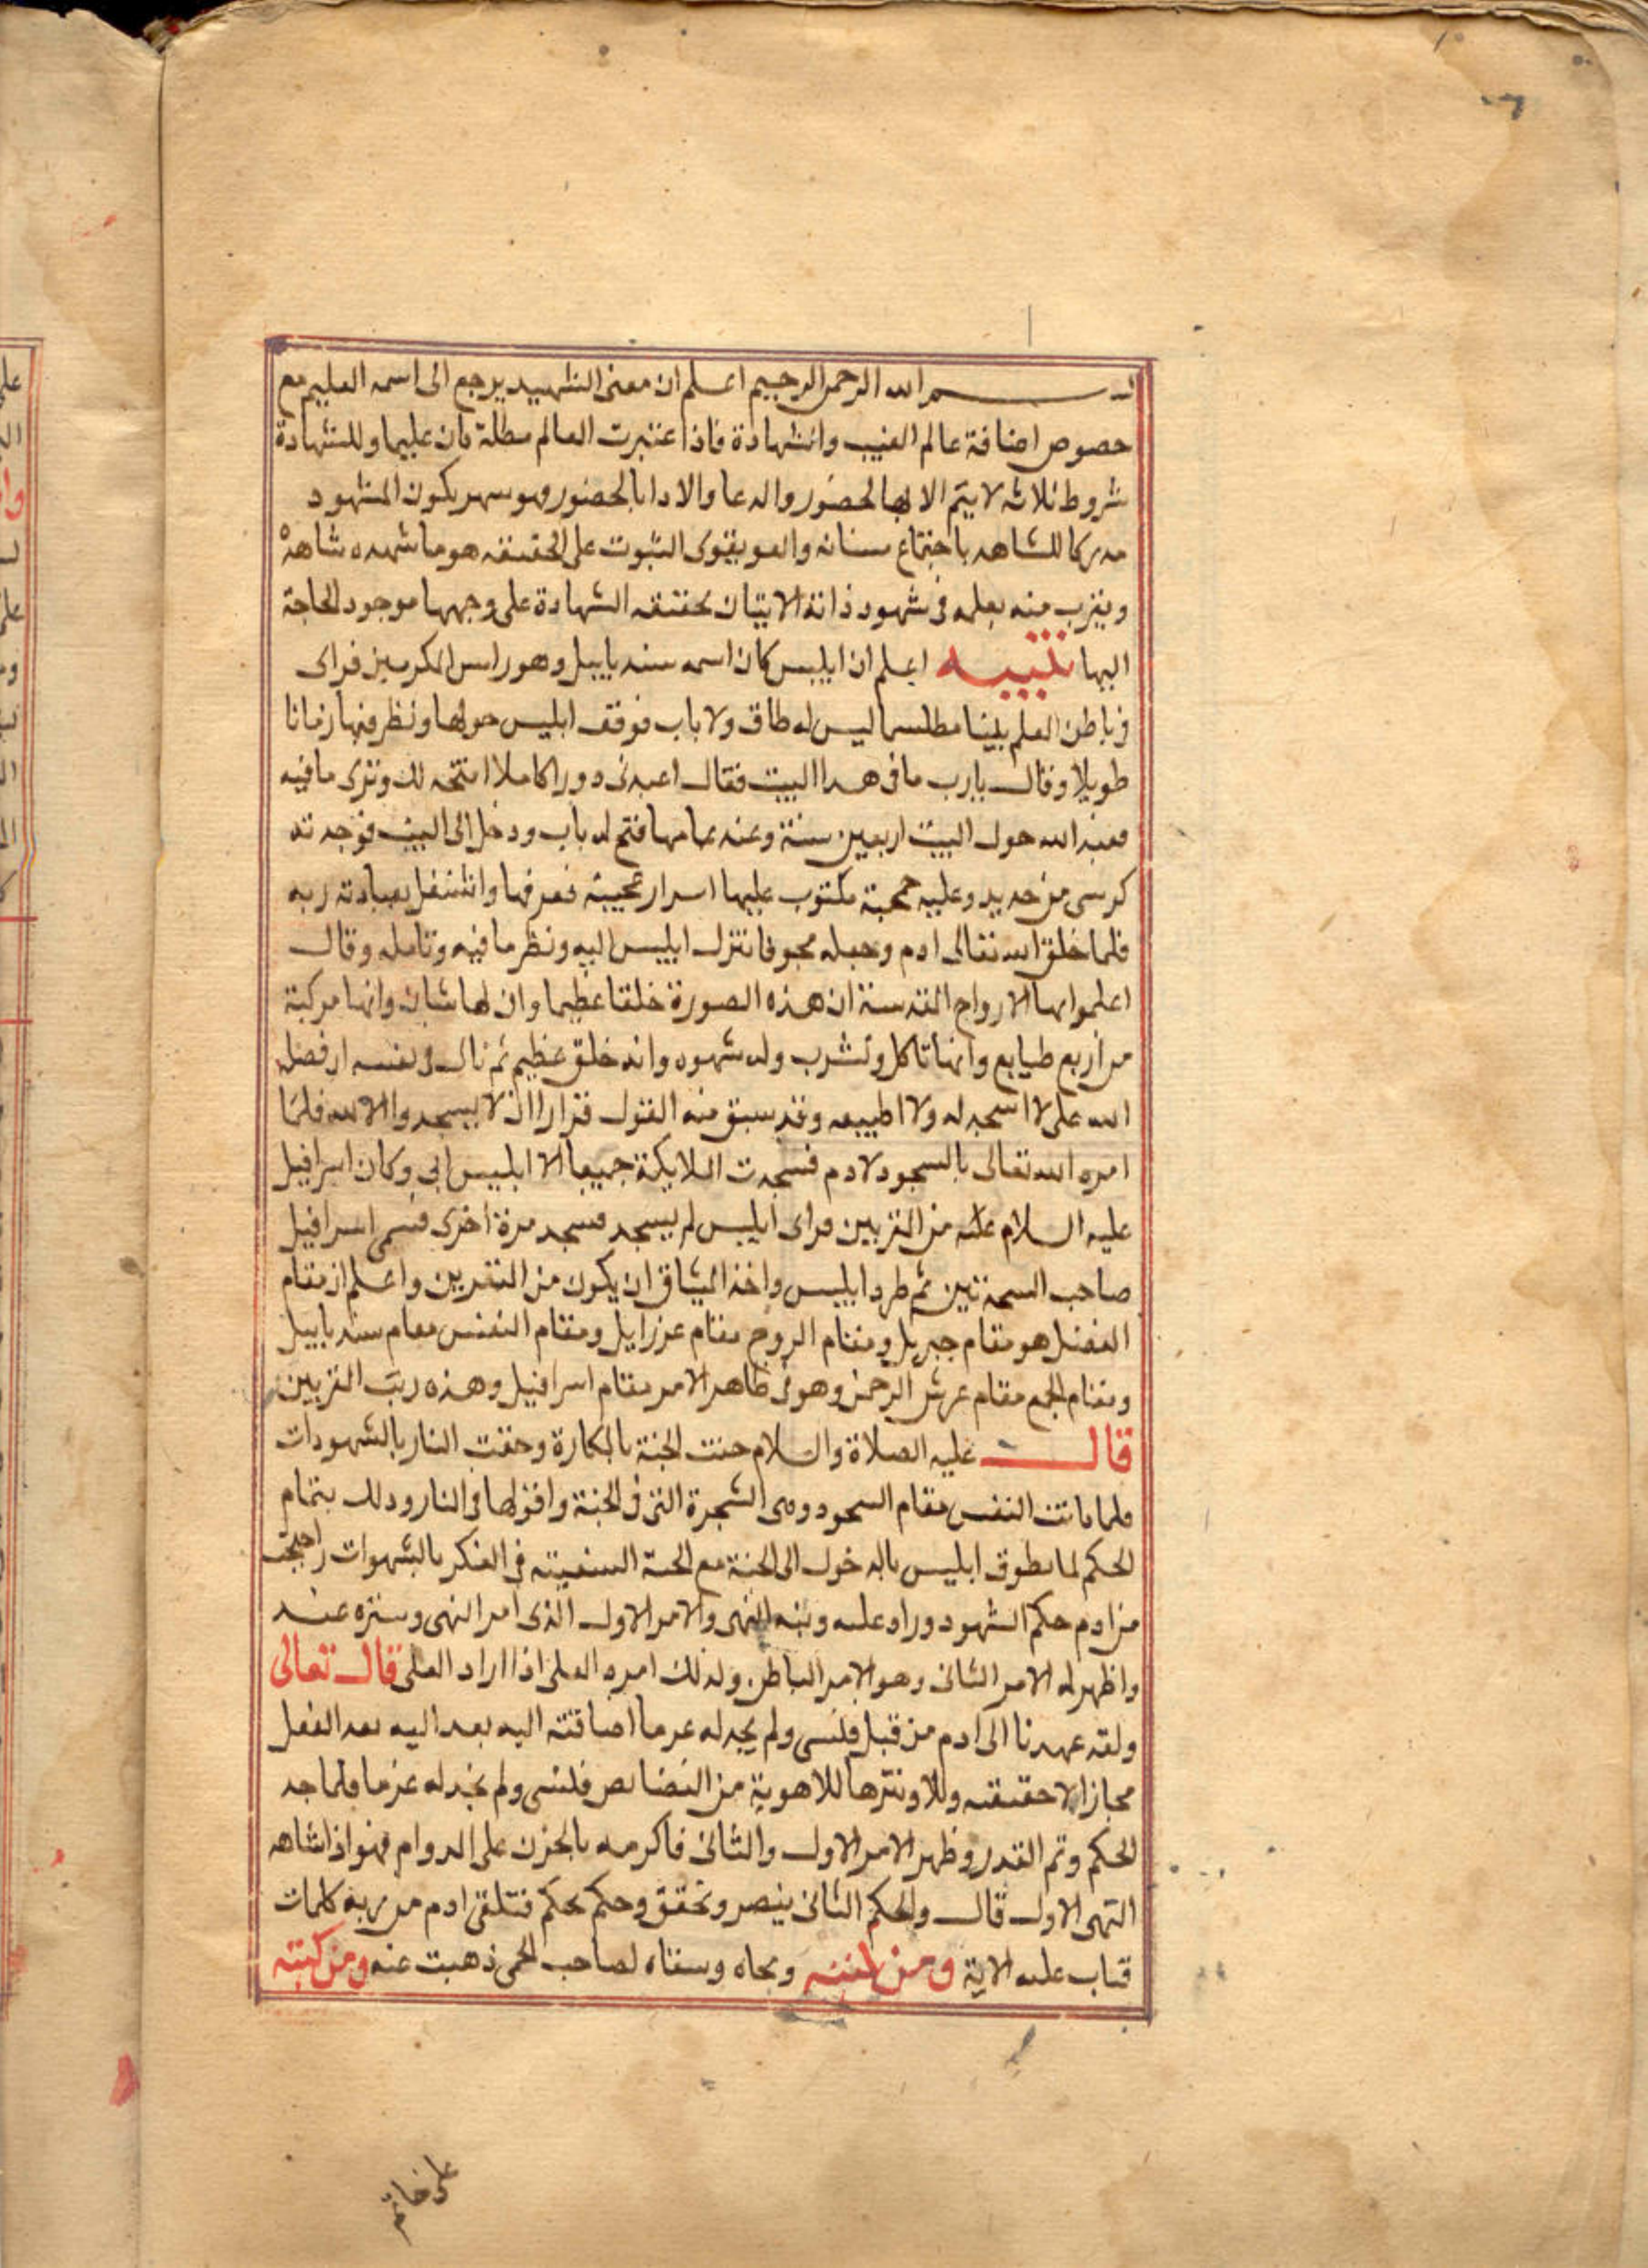 بسم الله الرحمن الرحيم اعلم ان معنى الشهيد يرجع الى اسمه العليم مع
خصوص اضافة عالم الغيب والشهادة فاذا اعتبرت العالم مطلقا عليما وللشهادة
شروط ثلاثه لا يتم الا بها الحضور والدعا والادا بالحضور يكون المشهود
مدركا للشاهد باجتماع التبوت على الحقيقه هو ما شهده شاهد
منه بعلمه فى شهود ذاته الاتيان بحقيقه الشهادة على وجهها موجود الحاجة
اليها تنبيه اعلم ان ابليس كان اسمه سندياييل وهو راس المكرمين فراى
فى باطن العلم بيتا مطلسما ليس له طاق ولا باب فوقف ابليس حولها ونظر فيها زمانا
طويلا وقال يارب ما فى هدا البيت فقال اعبدنى دورا كاملا افتحه لك وترى ما فيه
فعبد الله حول البيت اربعين سنة وعند تمامها فتح له باب ودخل الى البيت فوجد
كرسى من حديد وعليه جمجمة مكتوب عليها اسرار عجيبه فعرفها واشتغل بعبادته ربه
فلما خلق الله تعالى ادم وجعله مجوفا نزل ابليس اليه ونظر ما فيه وتامله وقال
اعلموا ايها الارواح القدسية ان هذه الصورة خلقا عظيما وان لها شان وانها مركبة
من اربع طبايع وانها تاكل وتشرب وله شهوه وانه خلق عظيم ثم قال فى نفسه ان فضله
الله على لا اسجد له ولا اطيعه وقد سبق منه القول قرارا ان لا يسجد والا لله فلما
امره الله تعالى بالسجود لادم فسجدت الملايكة جميعا الا ابليس ابى وكان اسرافيل
عليه السلام من المقربين فراى ابليس لم يسجد فسجد مرة اخرى فسمى اسرافيل
صاحب السجدتين ثم طرد ابليس واخذ الميثاق ان يكون من المقربين واعلم ان مقام
هو مقام جبريل ومقام الروح مقام عزرايل ومقام النفس مقام سندياييل
ومقام الجمع مقام عرش الرحمن وهو فى ظاهر الامر مقام اسرافيل وهذه رتب المقربين
قال عليه الصلاة والسلام حفت الجنة بالمكارة وحفت النار بالشهوات
فلما النفس مقام السجود وهى الشجرة التى فى الجنة فى النار ودلك بتمام
الحكم لما ابليس بالدخول الى الجنة مع فى الفكر بالشهوات
من ادم حكم الشهود والامر الاول الذى امر النهى وستره عند
واظهر له الامر الثانى وهو الامر الباطن ولذلك امره العلى اذا اراد العلى قال تعالى
ولقد عهدنا الى ادم من قبل فنسى ولم يجد له عزما اضافته اليه بعد الفعل
مجازا لا حقيقه من فنسى ولم نجد له عزما فلما
الحكم وتم القدر وظهر الامر الاول والثانى فاكرمه بالحزن على الدوام فهو اذا شاهد
النهى الاول قال والحكم الثانى وتحقق وحكم بحكم فتلقى ادم من ربه كلمات
فتاب عليه الاية ومن كتبه ومحاه وسقاه لصاحب الحمى ذهبت عنه ومن كتبه
على خاتم